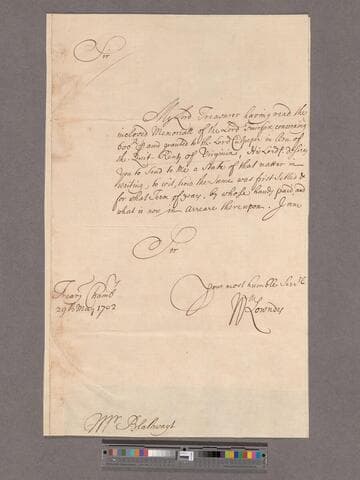 Sir
My Lord Treasurer having read the
inclosed Memoriall of the Lord Fairfax concerning
600 ₤ p ann granted to the Lord Culpeper in lieu of
the Quit Rents of Virginia His Lordp. desires
you to Send to me a State of that matter in
Writing, to wit, how the same was first Setled &
for what Term of years, by whose hands paid and
what is now in Arreare thereupon. I am
Sir
Your most humble Servt.
Wm Lowndes
Treary Chambrs
29th May 1702
Mr. Blathwayt